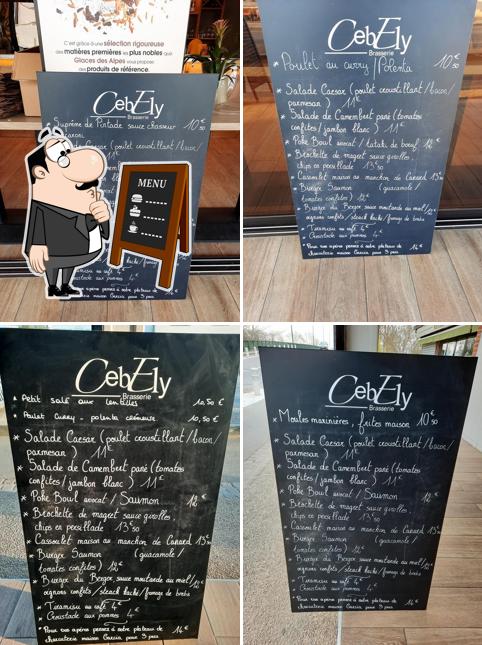 C'est grâce à une sélection rigoureuse
des matières premières les plus nobles que
Glaces des Alpes vous propose
des produits de référence.
CebEly
Brasserie
* Suprême de Pintade sauce chasseur 10€50
Salade Caesar (poulet croustillant/bacon/
11€
MENU
Tiramisu au café 4€
Croustade aux pommes 4€
apéro pensez à notre plateau de
maison Garcia pour 3 pers 14€
CebEly
Brasserie
* Poulet au curry / Polenta 10€50
* Salade Caesar (poulet croustillant/bacon/
parmesan) 11€
* Salade de Camembert pané (tomates
confites/jambon blanc) 11€
* Poke Bowl avocat / tataki de boeuf 12€
* Brochette de magret sauce girolles
chips en persillade 13€50
* Cassoulet maison au manchon de Canard 13€50
* Burger Saumon (guacamole/
tomates confites) 12€
* Burger du Berger sauce moutarde au miel/12€
oignons confits/steack haché/fromage de brebis
* Tiramisu au café 4€
* Croustade aux pommes 4€
* Pour vos apéros pensez à notre plateau de
charcuterie maison Garcia pour 3 pers 14€
CebEly
Brasserie
* Petit salé aux lentilles 10,50€
* Poulet Curry - polenta crémeuse 10,50€
* Salade Caesar (poulet croustillant/bacon/
parmesan) 11€
* Salade de Camembert pané (tomates
confites/jambon blanc) 11€
* Poke Bowl avocat / Saumon 12€
* Brochette de magret sauce girolles
chips en persillade 13€50
* Cassoulet maison au manchon de Canard 13€50
* Burger Saumon (guacamole/
tomates confites) 12€
* Burger du Berger sauce moutarde au miel/12€
oignons confits/steack haché/fromage de brebis
* Tiramisu au café 4€
* Croustade aux pommes 4€
* Pour vos apéros pensez à notre plateau de
charcuterie maison Garcia pour 3 pers 14€
CebEly
Brasserie
* Moules marinières, frites maison 10€50
* Salade Caesar (poulet croustillant/bacon/
parmesan) 11€
* Salade de Camembert pané (tomates
confites/jambon blanc) 11€
* Poke Bowl avocat / Saumon 12€
* Brochette de magret sauce girolles
chips en persillade 13€50
* Cassoulet maison au manchon de Canard 13€50
* Burger Saumon (guacamole/
tomates confites) 12€
* Burger du Berger sauce moutarde au miel/12€
oignons confits/steack haché/fromage de brebis
* Tiramisu au café 4€
* Croustade aux pommes 4€
* Pour vos apéros pensez à notre plateau de
charcuterie maison Garcia pour 3 pers 14€